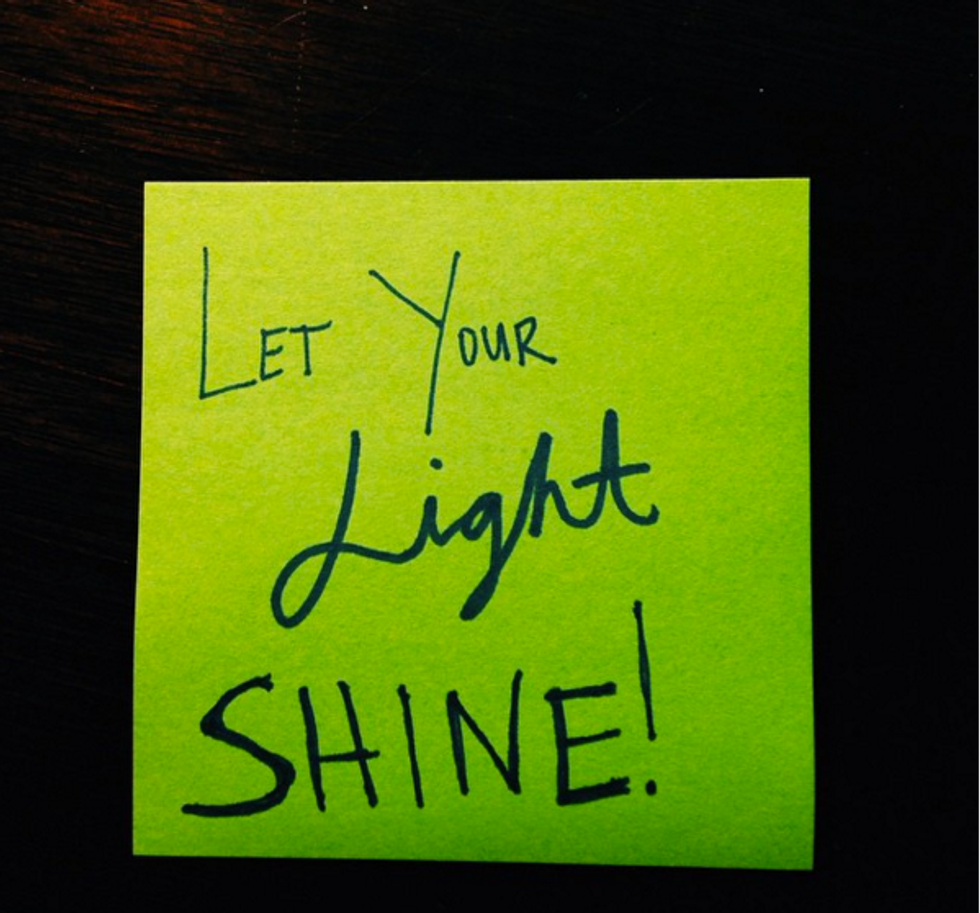 LET YOUR
Light
SHINE!